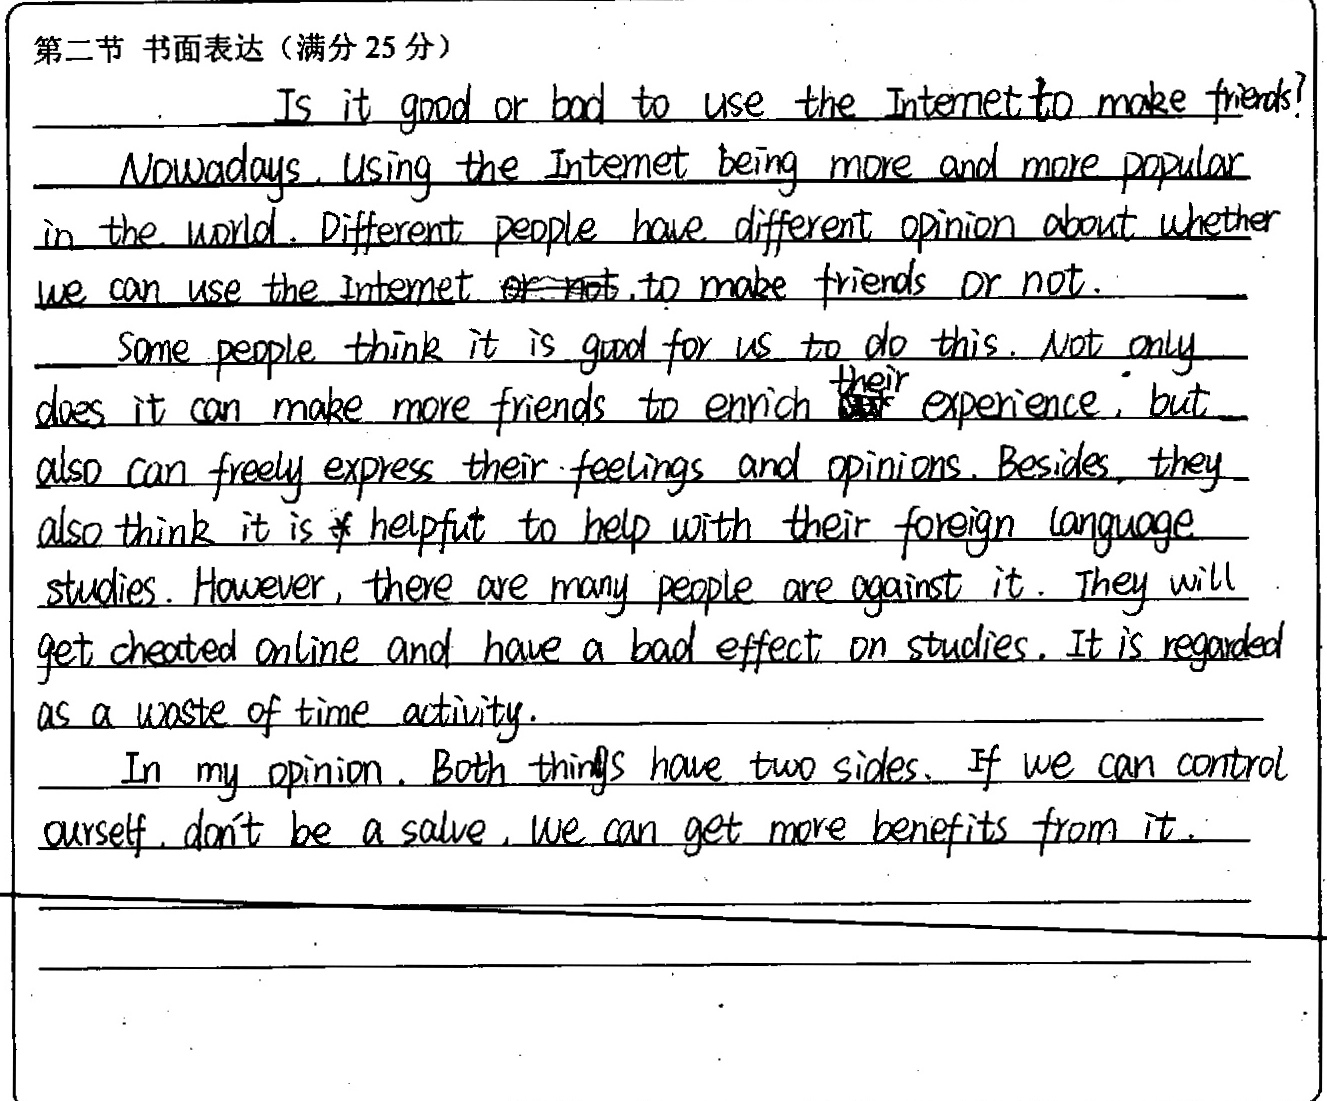 第二节 书面表达（满分 25 分）
Is it good or bad to use the Internet to make friends?
Nowadays, Using the Internet being more and more popular
in the world. Different people have different opinion about whether
we can use the Internet or not, to make friends or not.
Some people think it is good for us to do this. Not only
does it can make more friends to enrich their experience, but
also can freely express their feelings and opinions. Besides, they
also think it is helpfut to help with their foreign language
studies. However, there are many people are against it. They will
get cheated online and have a bad effect on studies. It is regarded
as a waste of time activity.
In my opinion. Both things have two sides. If we can control
ourself, don't be a salve, We can get more benefits from it.